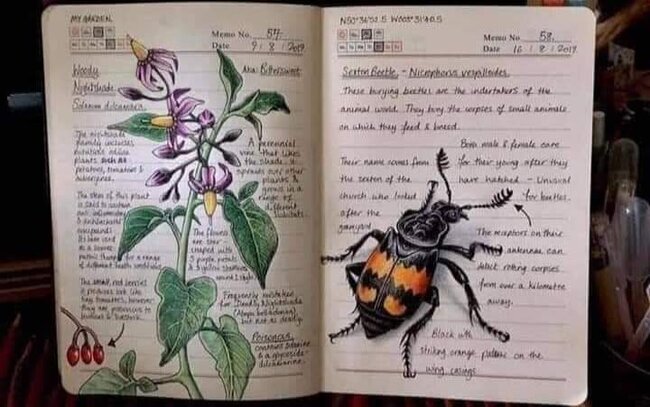 MY GARDEN
Memo No. 57.
Date 9 / 8 / 2019
Woody
Nightshade
Solanum dulcamara.
Aka: Bittersweet
The nightshade
family includes
plants such as
potatoes, tomatoes &
aubergines.
A perennial
vine that likes
the shade &
sprouts over other
plants &
grows in a
range of
different habitats.
The stem of this plant
is said to contain
anti-inflammatory
for a range
of different health conditions
The flowers
are star
shaped with
5 purple petals
& 5 yellow stamens
The small red berries
it produces look like
tiny tomatoes, however
they are poisonous to
humans & livestock.
Frequently mistaken
for Deadly Nightshade
(Atropa belladonna)
but not as deadly.
Poisonous
contains solanine
& a glycoside-
dulcamarine.
N50°36'02.5 W003°31'40.5
Memo No. 58.
Date 16 / 8 / 2019
Sexton Beetle - Nicrophorus vespilloides.
These burying beetles are the undertakers of the
animal world. They bury the corpses of small animals
on which they feed & breed.
Their name comes from
the sexton of the
church who looked
after the
graveyard
Both male & female care
for their young after they
have hatched - unusual
for beetles.
The receptors on their
antennae can
detect rotting corpses
from over a kilometre
away.
Black with
striking orange patches on the
wing casings